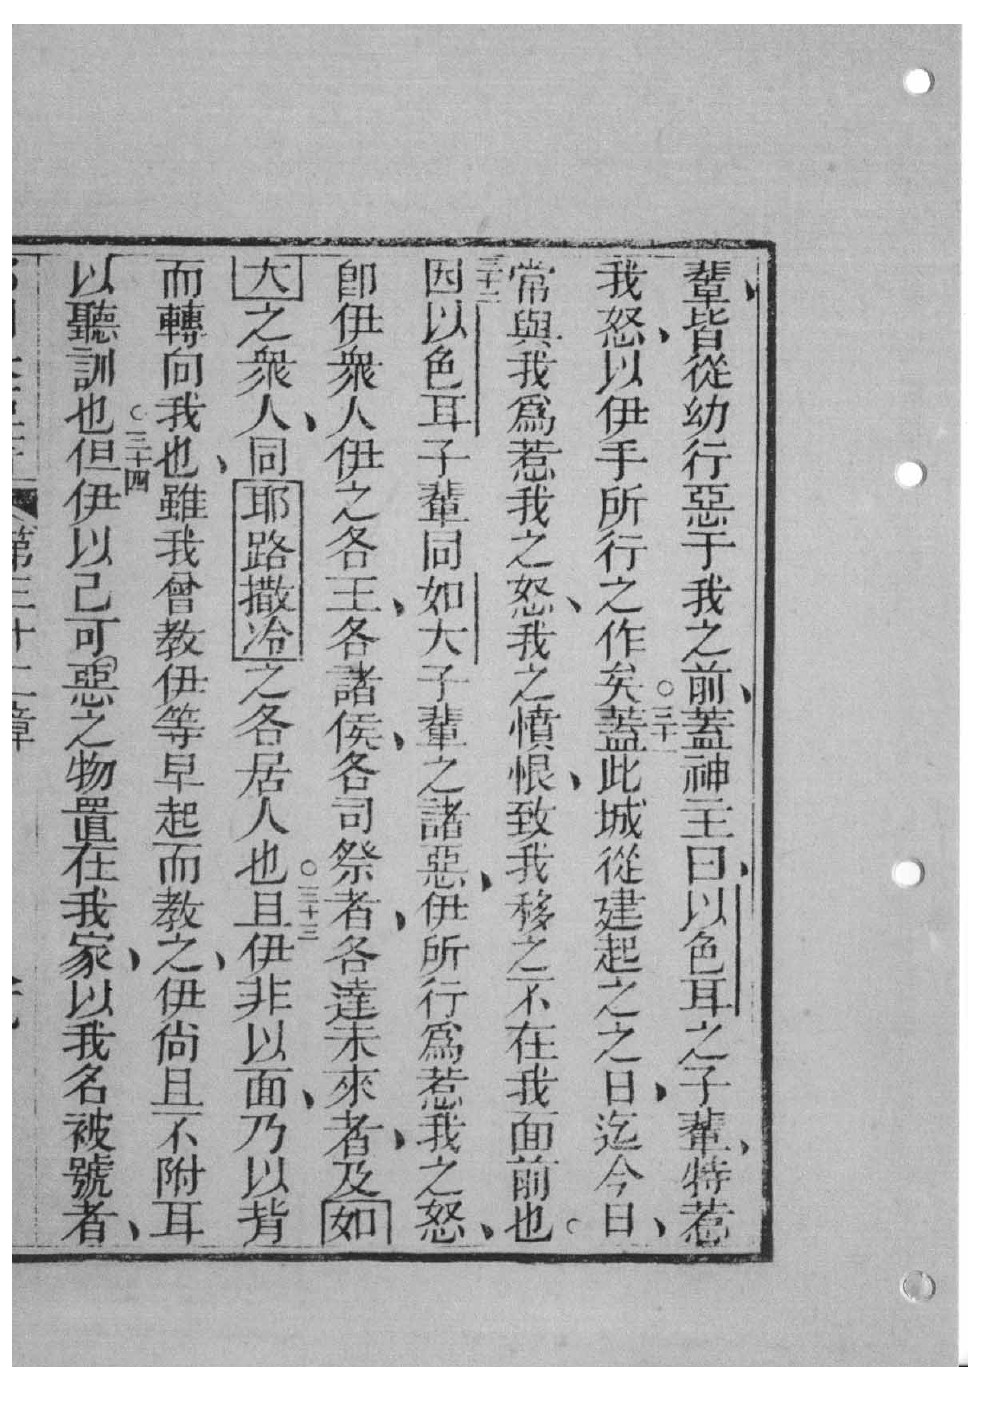 輩、皆從幼行惡于我之前、蓋神主曰、以色耳之子輩、特惹
我怒、以伊手所行之作矣。三十一蓋此城從建起之之日、迄今日、
常與我爲惹我之怒、我之憤恨、致我移之不在我面前也。
三十二因以色耳子輩同如大子輩之諸惡、伊所行爲惹我之怒、
卽伊衆人伊之各王、各諸侯、各司祭者、各達未來者、及如
大之衆人、同耶路撒冷之各居人也。三十三且伊非以面、乃以背
而轉向我也、雖我曾教伊等早起而教之、伊尙且不附耳
以聽訓也。三十四但伊以己可惡之物置在我家、以我名被號者、
第三十二章